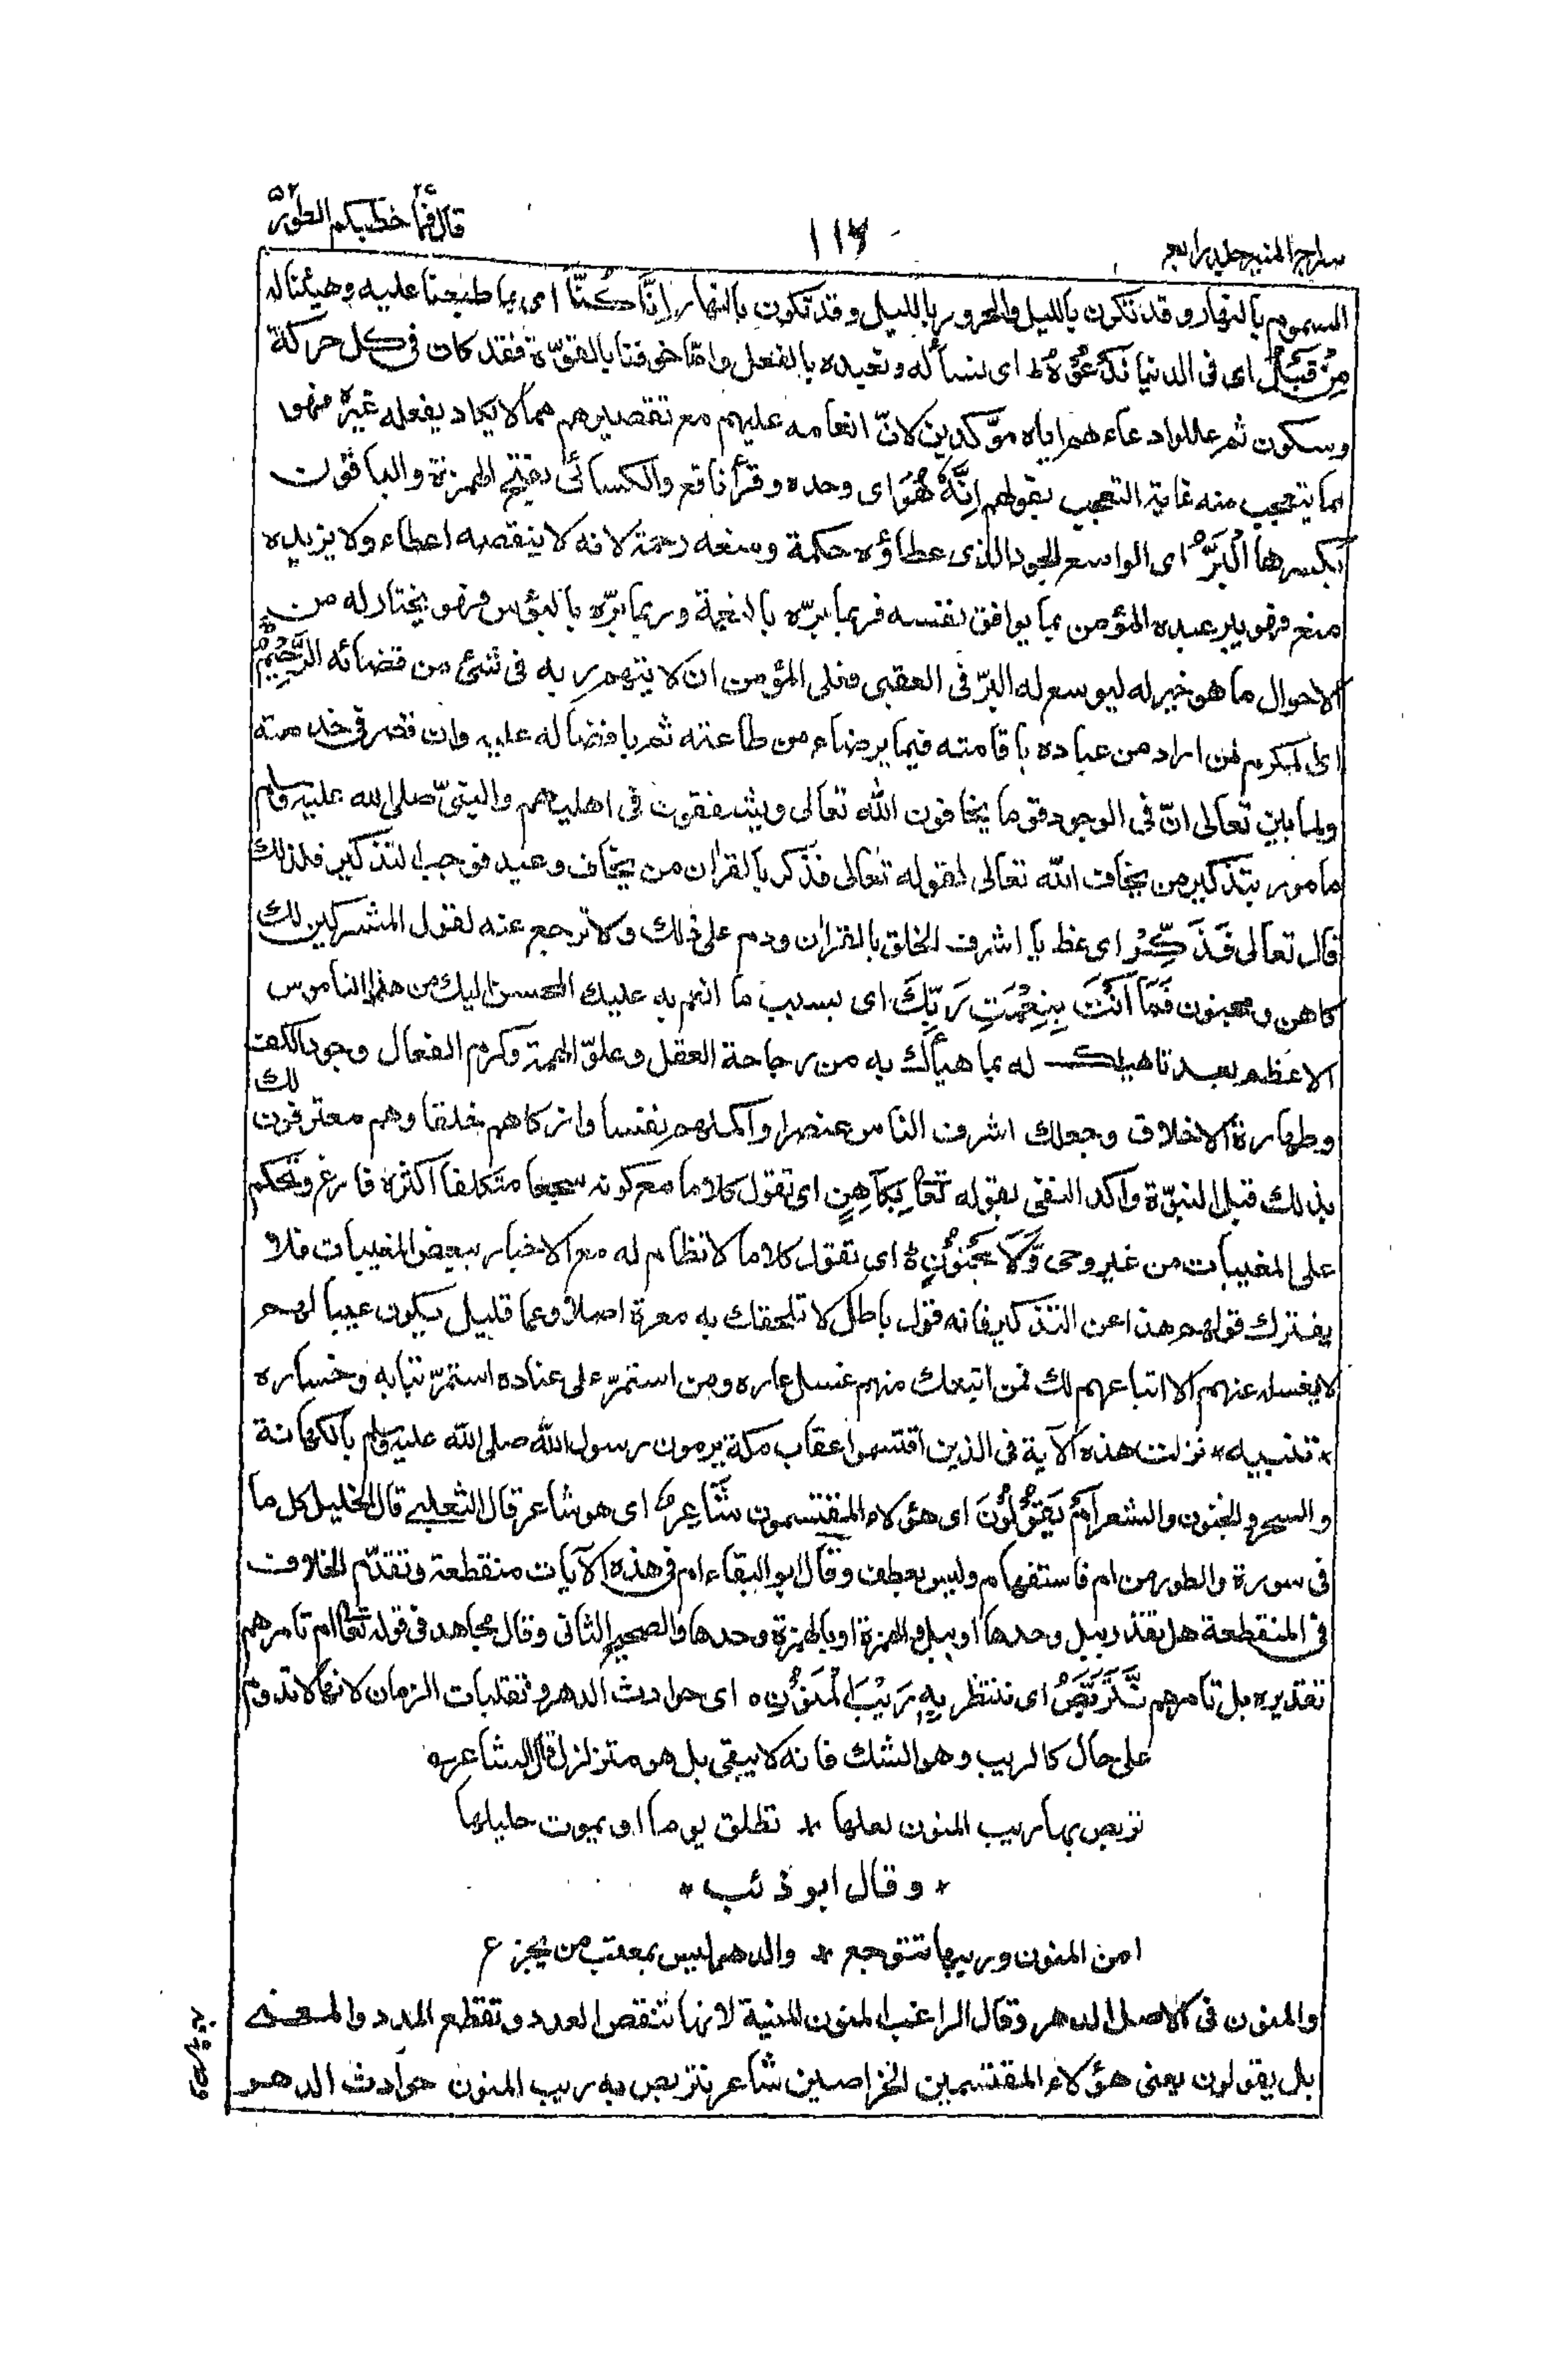 قال فما خطبكم ٢٧ الطور ٥٢
١١٦
سراج المنير جلد رابع
السموم بالنهار وقد تكون بالليل والحرور بالليل وقد تكون بالنهار اِنَّا كُنَّا اى بما طبعنا عليه وهيئنا له
مِنْ قَبْلُ اى فى الدنيا نَدْعُوْهُ ط اى نسأله ونعبده بالفعل واما خوفنا بالقوّة فقد كان فى كل حركة
وسكون ثم عللوا دعاءهم اياه مؤكدين لانّ انعامه عليهم مع تقصيرهم مما لا يكاد يفعله غيره فهو
مما يتعجب منه غاية التعجب بقولهم اِنَّهٗ هُوَ اى وحده وقرأ نافع والكسائى بفتح الهمزة والباقون
بكسرها الْبَرُّ اى الواسع الجود الذى عطاؤه حكمة ومنعه رحمة لانه لا ينقصه اعطاء ولا يزيده
منع فهو يبر عبده المؤمن بما يوافق نفسه فربما برّه بالنعمة وربما برّه بالبؤس فهو يختار له من
الاحوال ما هو خير له ليوسع له البرّ فى العقبى فعلى المؤمن ان لا يتهم ربه فى شئ من قضائه الرَّحِيْمُ
اى المكرم لمن اراد من عباده باقامته فيما يرضاه من طاعته ثم بافضاله عليه وان قصر فى خدمته
ولما بين تعالى انّ فى الوجود قوما يخافون الله تعالى ويشفقون فى اهليهم والنبىّ صلى الله عليه وسلم
مامور بتذكير من يخاف الله تعالى لقوله تعالى فذكر بالقران من يخاف وعيد فوجب التذكير فلذلك
قال تعالى فَذَكِّرْ اى عظ يا اشرف الخلق بالقران ودم على ذلك ولا ترجع عنه لقول المشركين لك
كاهن ومجنون فَمَا اَنْتَ بِنِعْمَتِ رَبِّكَ اى بسبب ما انعم به عليك المحسن اليك من هذا الناموس
الاعظم بعد تاهيلك له بما هيأك به من رجاحة العقل وعلوّ الهمة وكرم الفعال وجود الكف
لك
وطهارة الاخلاق وجعلك اشرف الناس عنصرا واكملهم نفسا وازكاهم خلقا وهم معترفون
بذلك قبل النبوّة واكد النفى بقوله تعا بِكَاهِنٍ اى تقول كلاما مع كونه سجعا متكلفا اكثره فارغ وتحكم
على المغيبات من غير وحى وَّلَا مَجْنُوْنٍ ط اى تقول كلاما لا نظام له مع الاخبار ببعض المغيبات فلا
يفترك قولهم هذا عن التذكير فانه قول باطل لا تلحقك به معرة اصلا وعما قليل يكون عيبا لهم
لا يغسله عنهم الا اتباعهم لك فمن اتبعك منهم غسل عاره ومن استمرّ على عناده استمرّ تبابه وخساره
* تنبيه * نزلت هذه الآية فى الذين اقتسموا عقاب مكة يرمون رسول الله صلى الله عليه وسلم بالكهانة
والسحر والجنون والشعر اَمْ يَقُوْلُوْنَ اى هؤلاء المقتسمون شَاعِرٌ اى هو شاعر قال الثعلبى قال الخليل كل ما
فى سورة والطور من ام فاستفهام وليس بعطف وقال ابو البقاء ام فى هذه الآيات منقطعة وتقدّم الخلاف
فى المنقطعة هل تقدّر ببل وحدها او ببل والهمزة او بالهمزة وحدها والصحيح الثانى وقال مجاهد فى قوله تعا ام تامرهم
تقديره بل تامرهم نَّتَرَبَّصُ اى ننتظر بِهٖ رَيْبَ الْمَنُوْنِ ٥ اى حوادث الدهر وتقلبات الزمان لانها لا تدوم
على حال كالريب وهو الشك فانه لا يبقى بل هو متزلزل قال الشاعر
تربص بها ريب المنون لعلها * تطلق يوما او يموت حليلها
* وقال ابو ذئب *
امن المنون وريبها تتوجع * والدهر ليس بمعتب من يجزع
والمنون فى الاصل الدهر وقال الراغب المنون المنية لانها تنقص العدد وتقطع المدد والمعنى
بل يقولون يعنى هؤلاء المقتسمين الخراصين شاعر نتربص به ريب المنون حوادث الدهر